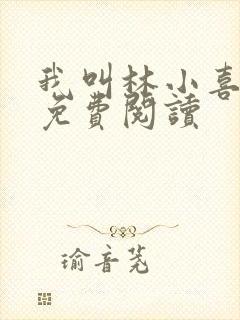 我叫林小喜
免費閱讀
瑜音茺